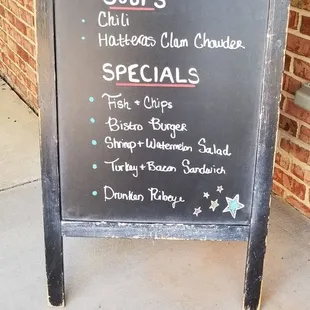 SOUPS
Chili
Hatteras Clam Chowder
SPECIALS
Fish + Chips
Bistro Burger
Shrimp + Watermelon Salad
Turkey + Bacon Sandwich
Drunken Ribeye